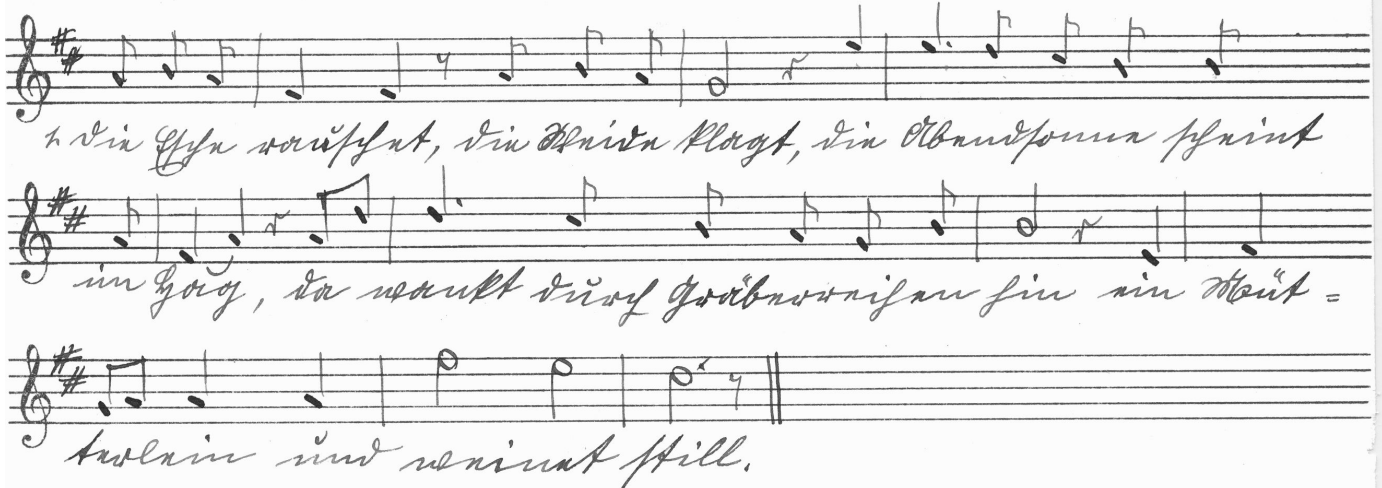 1. Die Esche rauschet, die Weide klagt, die Abendsonne scheint
im Hag, da wankt durch Gräberreihen hin ein Müt =
terlein und weinet still.